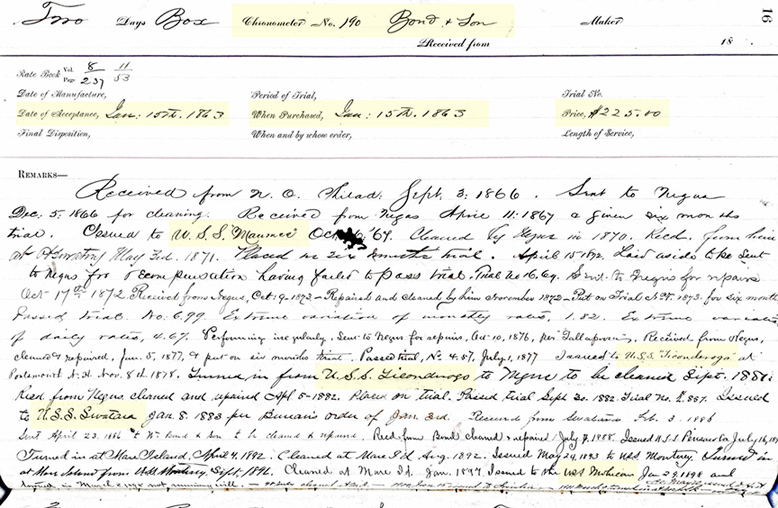 Two Days Box Chronometer No. 190 Bond & Son Maker
Received from 18
16
Rate Book Vol. 8 11
Page 237 53
Date of Manufacture, Period of Trial, Trial No.
Date of Acceptance, Jan: 15th. 1863 When Purchased, Jan: 15th. 1863 Price, $225.00
Final Disposition, When and by whose order, Length of Service,
REMARKS—
Received from N. O. Philad. Sept. 3: 1866. Sent to Negus
Dec. 5: 1866 for cleaning. Received from Negus April 11: 1867 & given six months
trial. Issued to U.S.S. "Maumee" Oct 67. Cleaned by Negus in 1870. Recd. from him
at Washington May 3d. 1871. Placed on six months trial. April 15 1872. Laid aside to be sent
to Negus for compensation having failed to pass trial. Trial No 16.69. Sent to Negus for repairs
Oct 17th 1872 Received from Negus, Oct 9. 1873 — Repaired and cleaned by him November 1872 — Put on Trial 1873. for six months
Passed trial. No. 6.99. Extreme variation of monthly rates, 1.82. Extreme variation
of daily rates, 4.67. Performing irregularly. Sent to Negus for repairs, Oct 10, 1876, per Received from Negus,
cleaned & repaired, Jan. 5, 1877, & put on six months trial. Passed trial, No 4.87, July 1, 1877 Issued to U.S.S. Ticonderoga at
Portsmouth N.H. Nov. 8th 1878. Turned in from U.S.S. Ticonderoga to Negus to be cleaned Sept. 1881.
Recd from Negus cleaned and repaired Apl 5-1882. Placed on trial. Passed trial Sept 30. 1882. Trial No. 887. Issued
to U.S.S. Swatara Jan. 8. 1883 per Bureau's order of Jan. 3rd. Received from Swatara Feb. 3, 1886
Sent April 23. 1886 to Wm Bond & Son to be cleaned & repaired. Recd from Bond cleaned & repaired July 7, 1888. Issued U.S.S. July 16,
Turned in at Mare Island, April 4, 1892. Cleaned at Mare Id Aug. 1892. Issued May 24, 1893 to U.S.S. Monterey. Turned in
at Mare Island from U.S.S. Monterey, Sept. 1896. Cleaned at Mare Id. Jan. 1897. Issued to the U.S.S. Mohican Jan 29, 1898 and